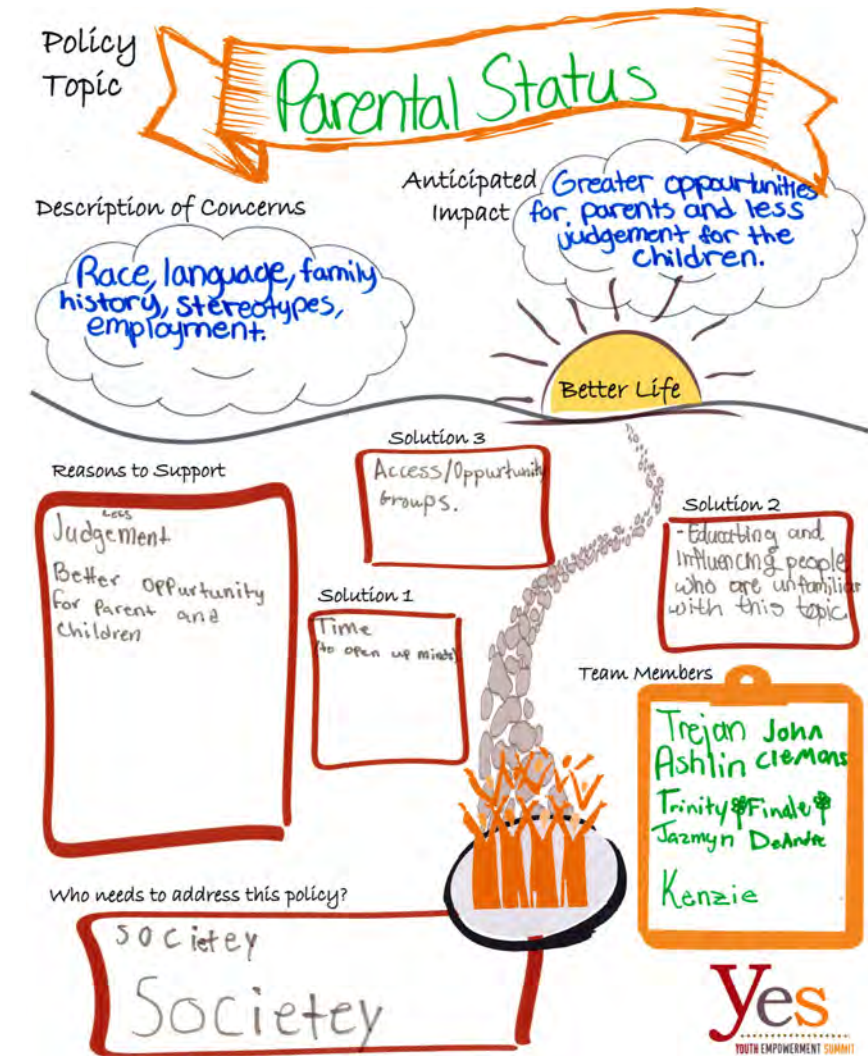 Policy
Topic
Parental Status
Description of Concerns
Race, language, family
history, stereotypes,
employment.
Anticipated
Impact
Greater oppourtunities
for parents and less
judgement for the
children.
Better Life
Reasons to Support
Less
Judgement
Better oppurtunity
for Parent and
children
Solution 3
Access/Oppurtunity
Groups.
Solution 1
Time
(to open up minds)
Solution 2
-Educating and
influencing people
who are unfamiliar
with this topic
Team Members
Trejan John
Ashlin Clemons
Trinity Finale
Jazmyn DeAndre
Kenzie
Who needs to address this policy?
societey
Societey
yes
YOUTH EMPOWERMENT SUMMIT